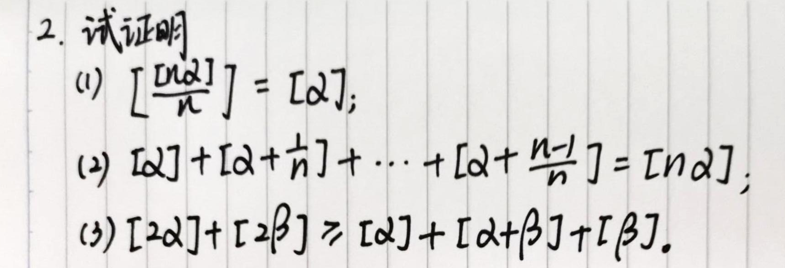 2. 试证明
(1) [[nα]/n] = [α];
(2) [α]+[α+1/n]+⋯+[α+(n-1)/n]=[nα];
(3) [2α]+[2β]≥[α]+[α+β]+[β].